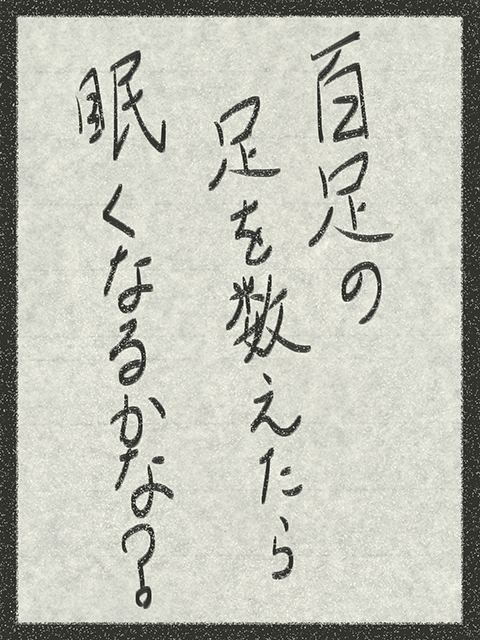 百足の
足を数えたら
眠くなるかな?